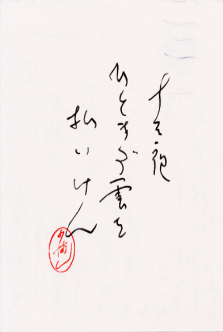 十三夜
ひとすぢ雲を
払いけん